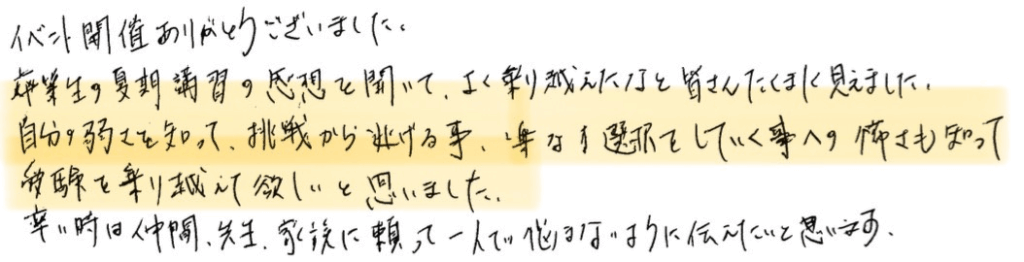 イベント開催ありがとうございました。
卒業生の夏期講習の感想を聞いて、よく乗り越えたなと皆さんたくましく見えました。
自分の弱さを知って、挑戦から逃げる事、楽な方選択をしていく事への怖さも知って
受験を乗り越えて欲しいと思いました。
辛い時は仲間、先生、家族に頼って一人で悩まないように伝えたいと思います。